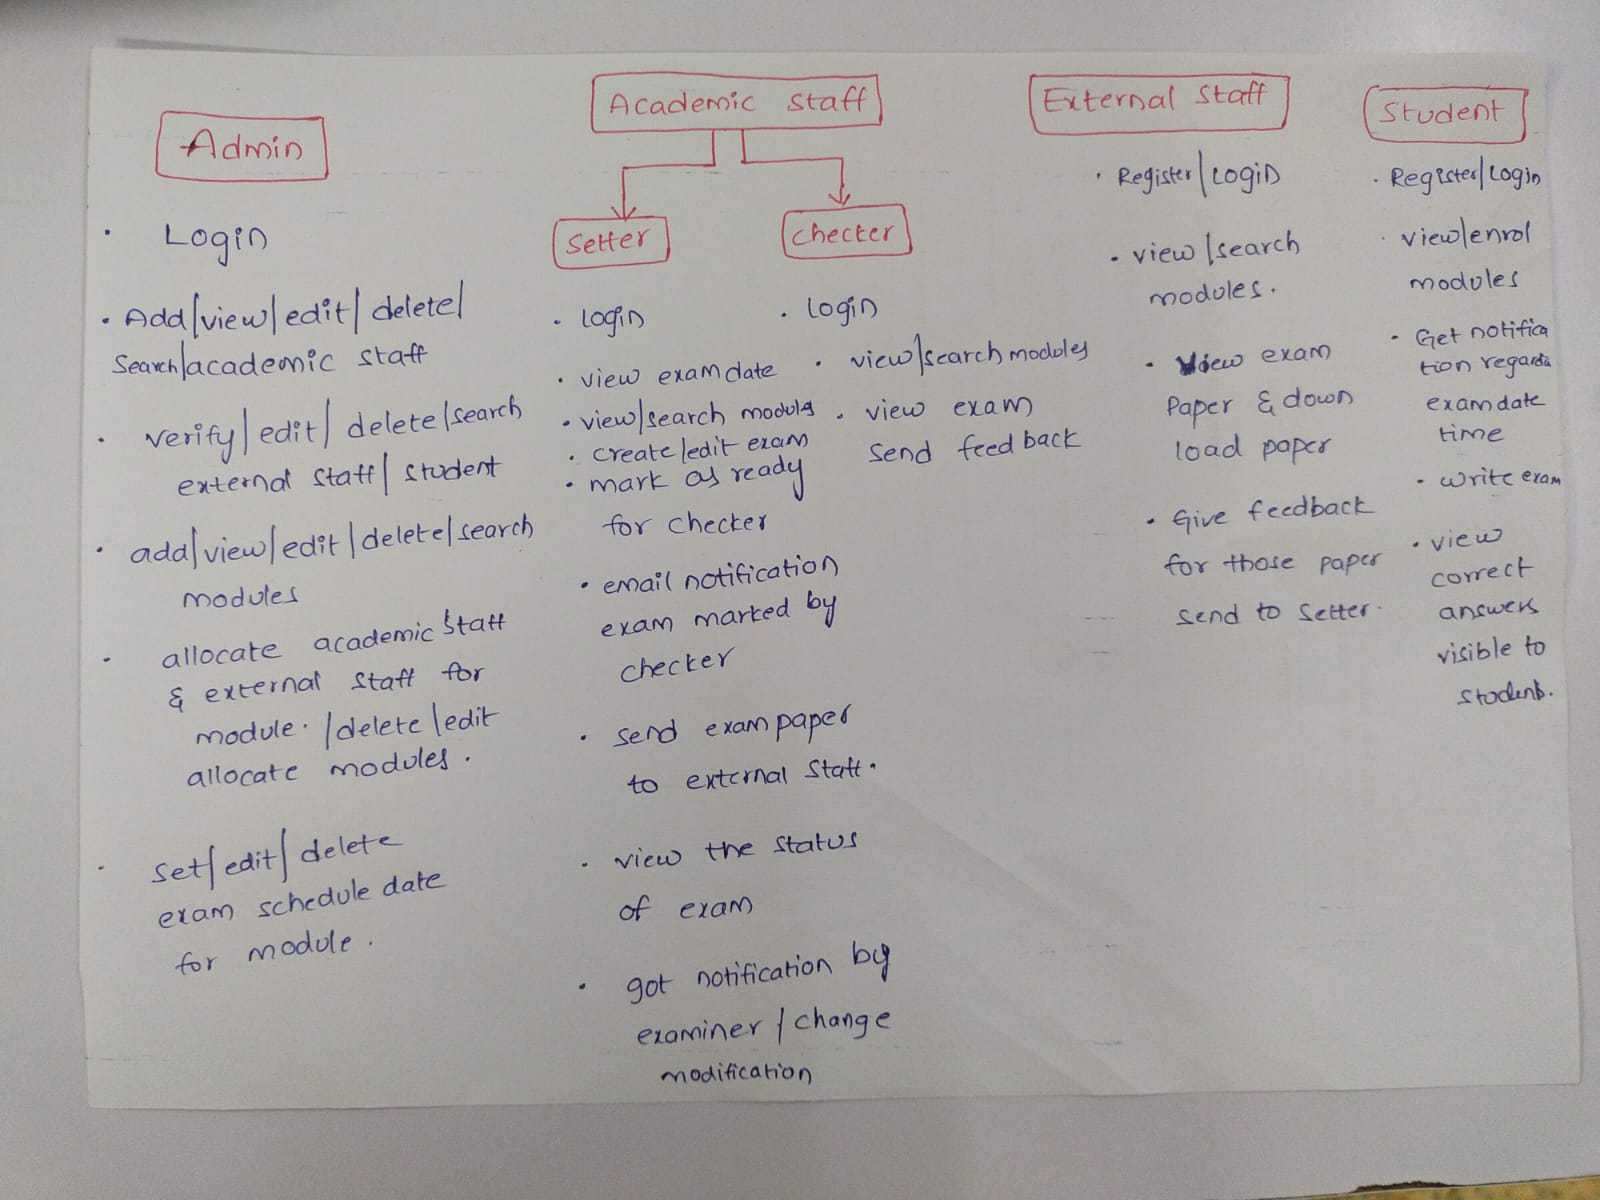 Admin
• Login
• Add/view/edit/delete/
Search/academic staff
• verify/edit/delete/search
external staff/student
• add/view/edit/delete/search
modules
• allocate academic staff
& external staff for
module. /delete/edit
allocate modules.
• set/edit/delete
exam schedule date
for module.
Academic staff
Setter
• login
• view exam date
• view/search modules
• create/edit exam
• mark as ready
for checker
• email notification
exam marked by
checker
• send exam paper
to external staff.
• view the status
of exam
• got notification by
examiner / change
modification
checker
• login
• view/search modules
• view exam
send feedback
External staff
• Register/Login
• view/search
modules.
• view exam
Paper & down
load paper
• Give feedback
for those paper
send to setter.
Student
• Register/Login
• view/enrol
modules
• Get notifica
tion regardi
exam date
time
• write exam
• view
correct
answers
visible to
students.